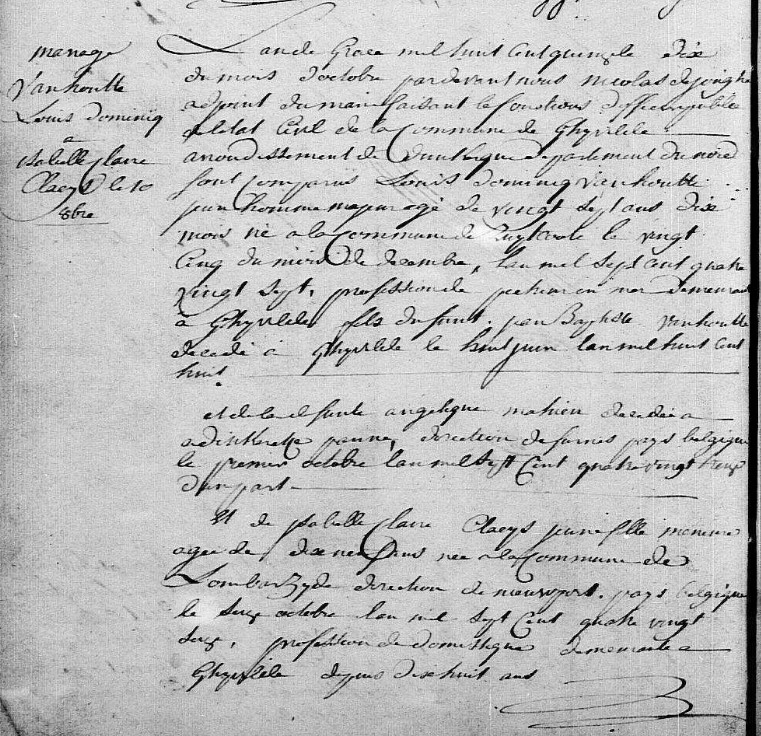 mariage
Vanhoutte
Louis Dominiq
a
isabelle Claire
Claeys le 10
8bre
L'an de Grace mil huit Cent quinze le dix
du mois d'octobre pardevant nous nicolas dejonghe
adjoint du maire faisant les fonctions d'officier publicq
de l'etat Civil de la Commune de Ghyvelde
arrondissement de Dunkerque departement du nord
sont Comparus Louis dominiq vanhoutte
jeune homme majeur agé de vingt sept ans dix
mois né a la Commune de le vingt
Cinq du mois de decembre, l'an mil sept Cent quatre
vingt sept, profession de pecheur en mer demeurant
à Ghyvelde fils du funt. jean Baptiste vanhoutte
decedé à Ghyvelde le huit juin l'an mil huit Cent
huit
et de la defunte angelique mahieu decedée a
a dinkerke panne, direction de furnes pays belgique
le premier octobre l'an mil sept Cent quatre vingt
d'une part
Et de isabelle Claire Claeys jeune fille mineure
agée de dix neuf ans née a la Commune de
Lombarzyde direction de nieuport. pays belgique
le octobre l'an mil sept Cent quatre vingt
, profession de domestique demeurante a
Ghyvelde depuis dix huit ans